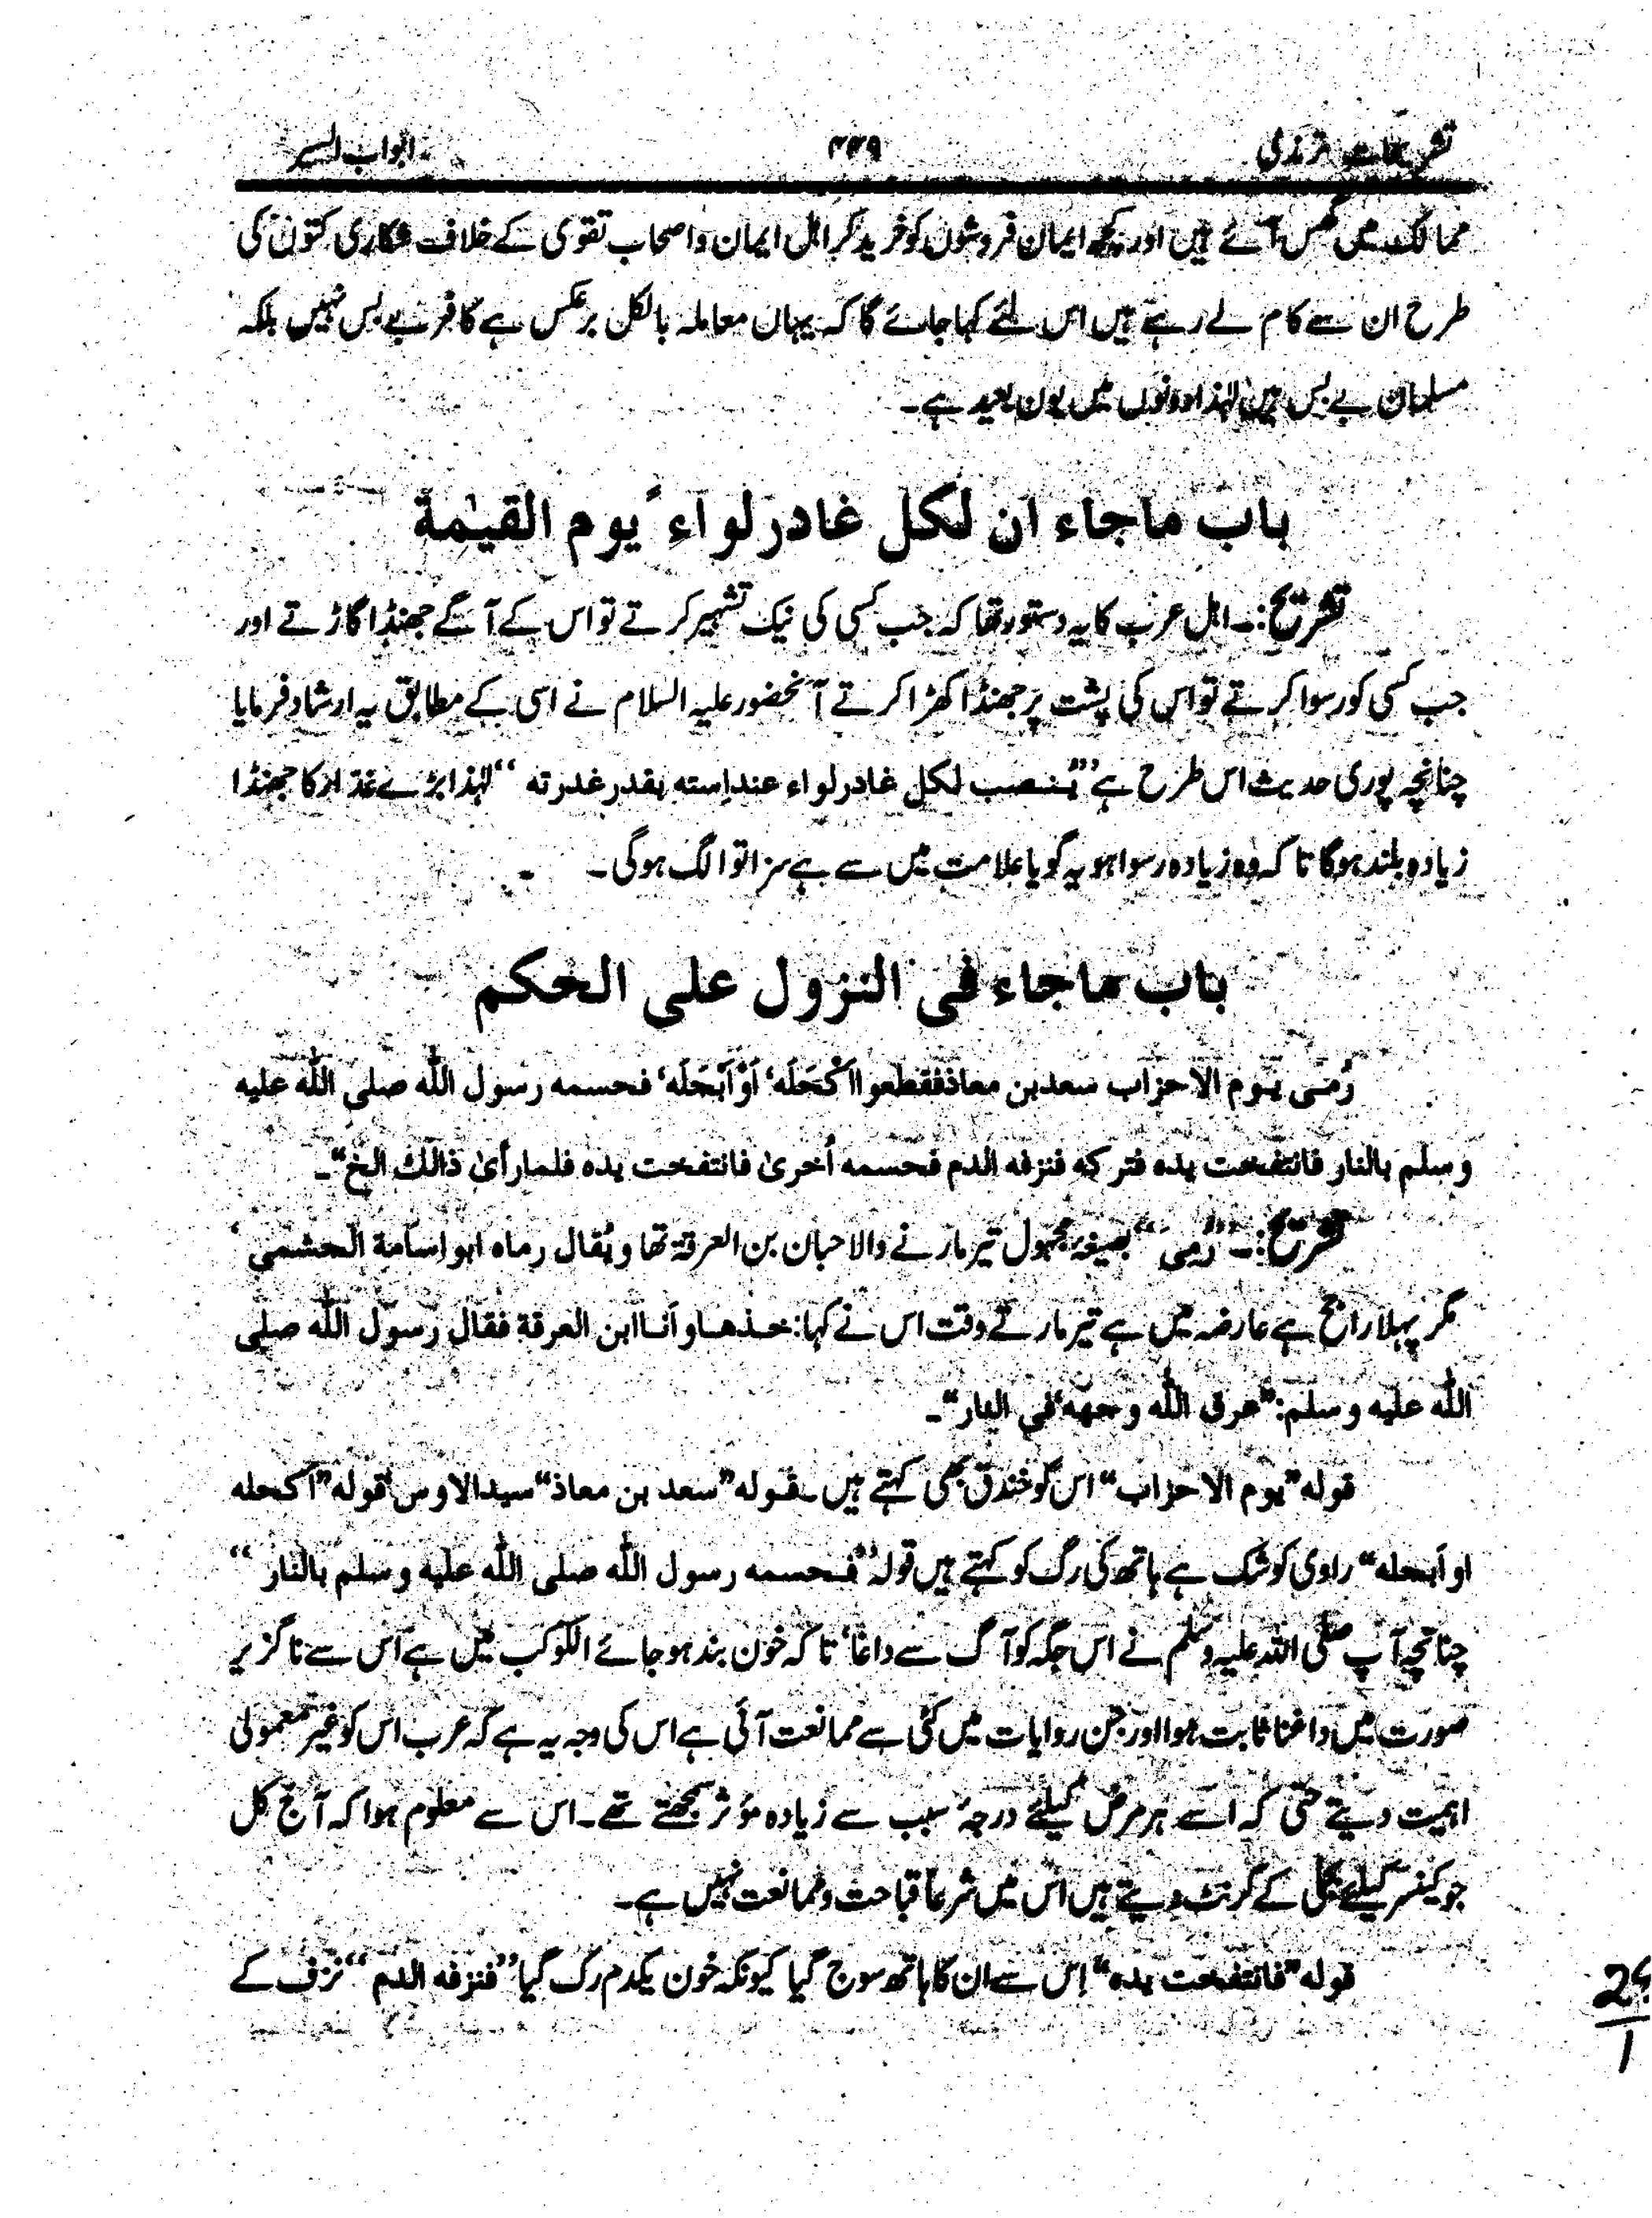 تشریحات ترمذی ۴۴۹ ابواب السیر
ممالک میں گھس آئے ہیں اور کچھ ایمان فروشوں کو خرید کر اہل ایمان واصحاب تقوی کے خلاف شکاری کتوں کی
طرح ان سے کام لے رہے ہیں اس لئے کہا جائے گا کہ یہاں معاملہ بالکل برعکس ہے کافر بے بس نہیں بلکہ
مسلمان بے بس ہیں لہٰذا دونوں میں بون بعید ہے۔
باب ماجاء ان لکل غادر لواءً یوم القیٰمة
تشریح:۔ اہل عرب کا یہ دستور تھا کہ جب کسی کی نیک تشہیر کرتے تو اس کے آگے جھنڈا گاڑتے اور
جب کسی کو رسوا کرتے تو اس کی پشت پر جھنڈا کھڑا کرتے آنحضور علیہ السلام نے اسی کے مطابق یہ ارشاد فرمایا
چنانچہ پوری حدیث اس طرح ہے ”یُنصب لکل غادر لواء عند اِسته بقدر غدرته“ لہٰذا بڑے غدّار کا جھنڈا
زیادہ بلند ہوگا تاکہ وہ زیادہ رسوا ہو یہ گویا علامت میں سے ہے سزا تو الگ ہوگی۔
باب ماجاء فی النزول علی الحکم
رُمی یوم الاحزاب سعد بن معاذ فقطعوا اکْحَلَه‘ اَوْ اَبْجَلَه‘ فحسمه رسول الله صلی الله علیه
وسلم بالنار فانتفخت یده فترکه فنزفه الدم فحسمه اُخریٰ فانتفخت یده فلما رأیٰ ذالک الخ“۔
تشریح:۔ ”رُمِیَ“ بصیغۂ مجہول تیر مارنے والا حبان بن العرقة تھا ویُقال رماه ابواسامة الجشمی‘
مگر پہلا راجح ہے عارضہ میں ہے تیر مارتے وقت اس نے کہا: خذها و اَنا ابن العرقة فقال رسول الله صلی
الله علیه وسلم: ”عرق الله وجهه‘ فی النار“۔
قوله ”یوم الاحزاب“ اس کو خندق بھی کہتے ہیں۔ قوله ”سعد بن معاذ“ سید الاوس‘ قوله ”اکحله
او اَبجله“ راوی کو شک ہے ہاتھ کی رگ کو کہتے ہیں قولہ ”فحسمه رسول الله صلی الله علیه وسلم بالنار“
چنانچہ آپ صلی اللہ علیہ وسلم نے اس جگہ کو آگ سے داغا‘ تاکہ خون بند ہو جائے الکوکب میں ہے اس سے ناگزیر
صورت میں داغنا ثابت ہوا اور جن روایات میں کَیّ سے ممانعت آئی ہے اس کی وجہ یہ ہے کہ عرب اس کو غیر معمولی
اہمیت دیتے حتی کہ اسے ہر مرض کیلئے درجۂ سبب سے زیادہ مؤثر سمجھتے تھے۔ اس سے معلوم ہوا کہ آج کل
جو کینسر کیلئے بجلی کے کرنٹ دیتے ہیں اس میں شرعاً قباحت وممانعت نہیں ہے۔
قوله ”فانتفخت یده“ اِس سے ان کا ہاتھ سوج گیا کیونکہ خون یکدم رک گیا ”فنزفه الدم“ نزف کے